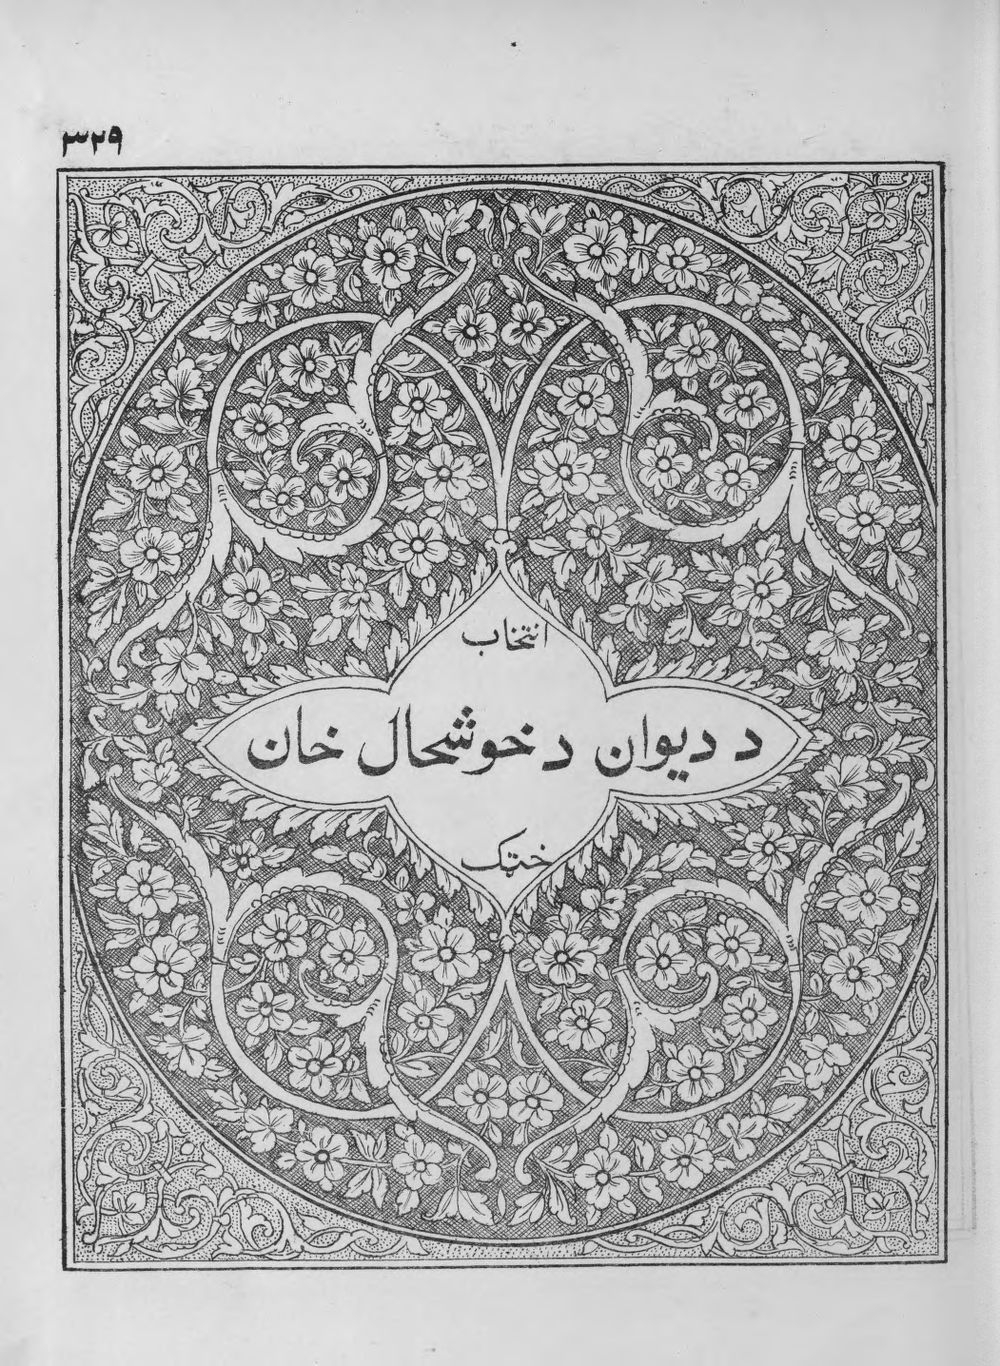 ۳۲۹
انتخاب
د دیوان د خوشحال خان
خټک